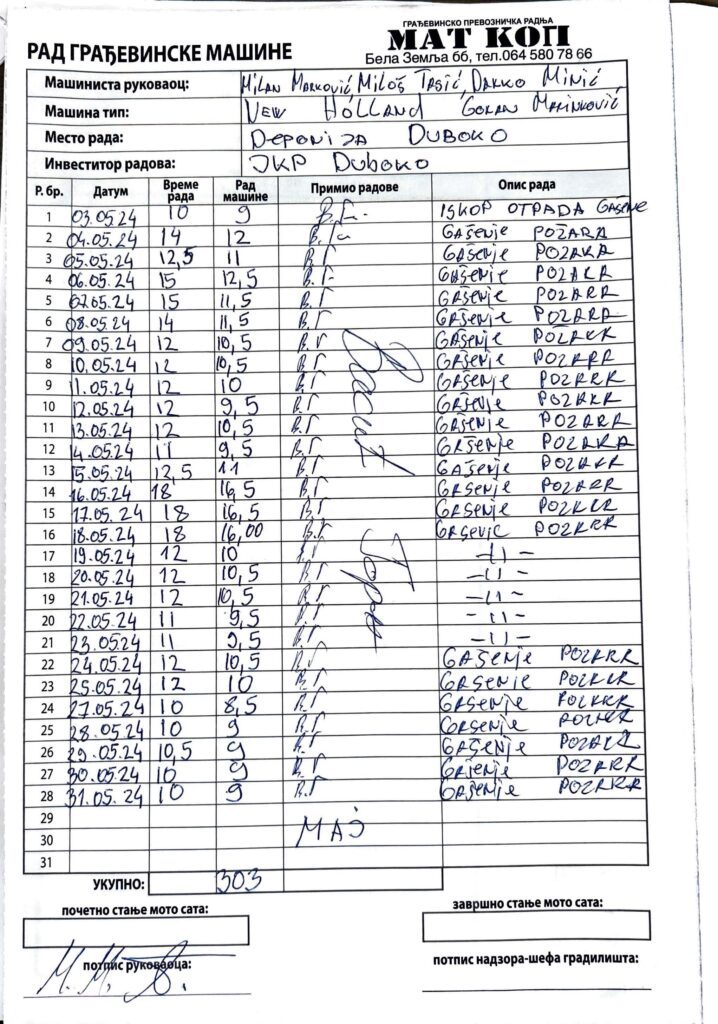 ГРАЂЕВИНСКО ПРЕВОЗНИЧКА РАДЊА
МАТ КОП
Бела Земља бб, тел.064 580 78 66
РАД ГРАЂЕВИНСКЕ МАШИНЕ
Машиниста руковаоц: Milan Marković, Miloš Tasić, Darko Minić
Машина тип: New Holland Goran Marinković
Место рада: Deponija Duboko
Инвеститор радова: JKP Duboko
Р. бр. Датум Време рада Рад машине Примио радове Опис рада
1 03.05.24 10 9 В.Г. ISKOP OTPADA GAŠENJE
2 04.05.24 14 12 В.Г. GAŠENJE POŽARA
3 05.05.24 12,5 11 В.Г GAŠENJE POŽARA
4 06.05.24 15 12,5 В.Г GAŠENJE POŽARA
5 07.05.24 15 11,5 В.Г GAŠENJE POŽARA
6 08.05.24 14 11,5 В.Г GAŠENJE POŽARA
7 09.05.24 12 10,5 В.Г GAŠENJE POŽARA
8 10.05.24 12 10,5 В.Г GAŠENJE POŽARA
9 11.05.24 12 10 В.Г GAŠENJE POZARA
10 12.05.24 12 9,5 В.Г GAŠENJE POZARA
11 13.05.24 12 10,5 В.Г GAŠENJE POZARA
12 14.05.24 11 9,5 В.Г GAŠENJE POZARA
13 15.05.24 12,5 11 В.Г GAŠENJE POZARA
14 16.05.24 18 16,5 В.Г GAŠENJE POZARA
15 17.05.24 18 16,5 В.Г GAŠENJE POZARA
16 18.05.24 18 16,00 В.Г. POZARA
17 19.05.24 12 10 В.Г -11-
18 20.05.24 12 10,5 В.Г -11-
19 21.05.24 12 10,5 В.Г -11-
20 22.05.24 11 9,5 В.Г -11-
21 23.05.24 11 9,5 В.Г -11-
22 24.05.24 12 10,5 В.Г GAŠENJE POZARA
23 25.05.24 12 10 В.Г GAŠENJE POZARA
24 27.05.24 10 8,5 В.Г GAŠENJE POZARA
25 28.05.24 10 9 В.Г GAŠENJE POZARA
26 29.05.24 10,5 9 В.Г GAŠENJE POZARA
27 30.05.24 10 9 В.Г GAŠENJE POZARA
28 31.05.24 10 9 В.Г GAŠENJE POZARA
29
30 МАЈ
31
УКУПНО: 303
почетно стање мото сата: завршно стање мото сата:
потпис руковаоца: потпис надзора-шефа градилишта:
М.М.